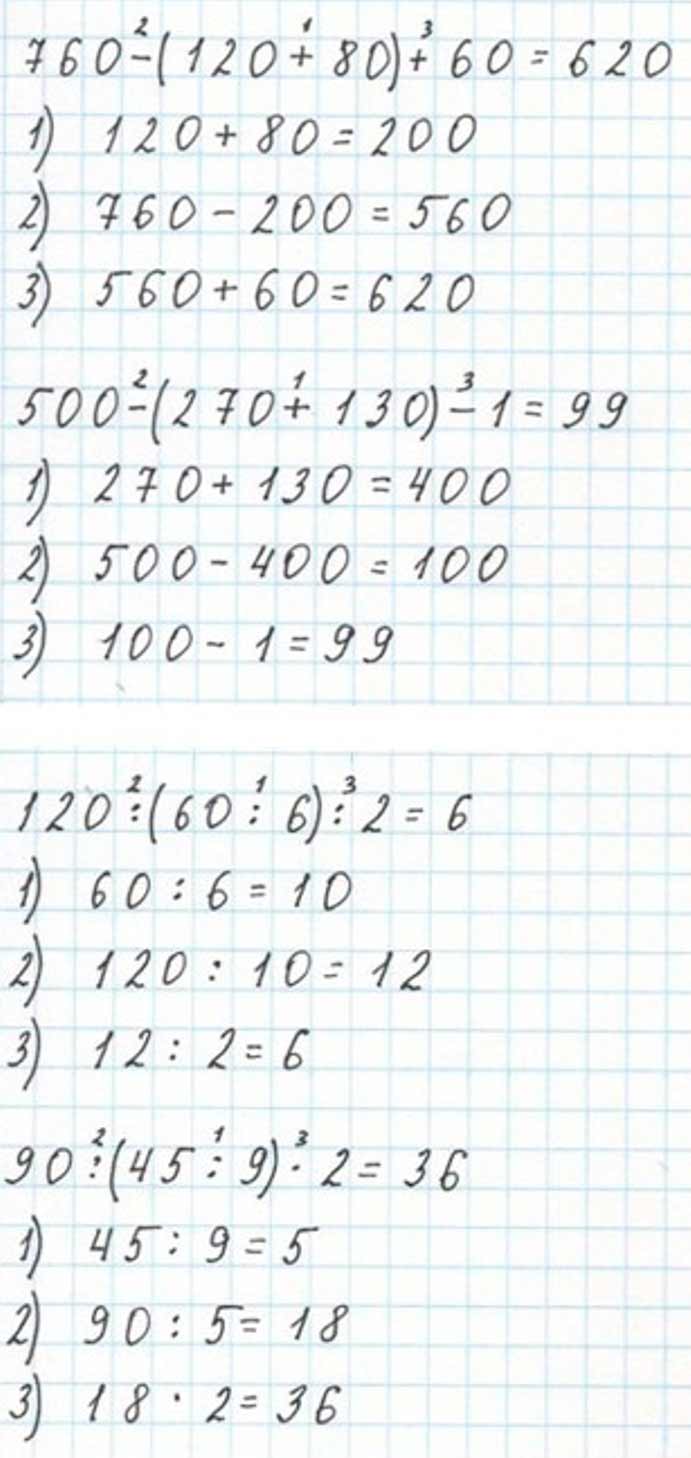 760-(120+80)+60=620
1) 120+80=200
2) 760-200=560
3) 560+60=620
500-(270+130)-1=99
1) 270+130=400
2) 500-400=100
3) 100-1=99
120:(60:6):2=6
1) 60:6=10
2) 120:10=12
3) 12:2=6
90:(45:9)·2=36
1) 45:9=5
2) 90:5=18
3) 18·2=36